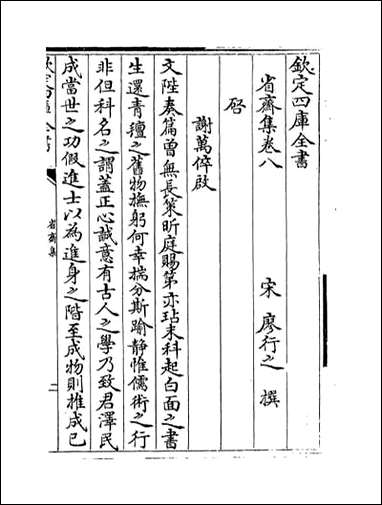 欽定四庫全書
省齋集卷八
宋 廖行之 撰
啓
謝萬倅啟
文陛奏篇曽無長策昕庭賜第亦玷末科起白面之書
生還青氊之舊物撫躬何幸揣分斯踰静惟儒術之行
非但科名之謂蓋正心誠意有古人之學乃致君澤民
成當世之功假進士以為進身之階至成物則推成已
欽定四庫全書
省齋集